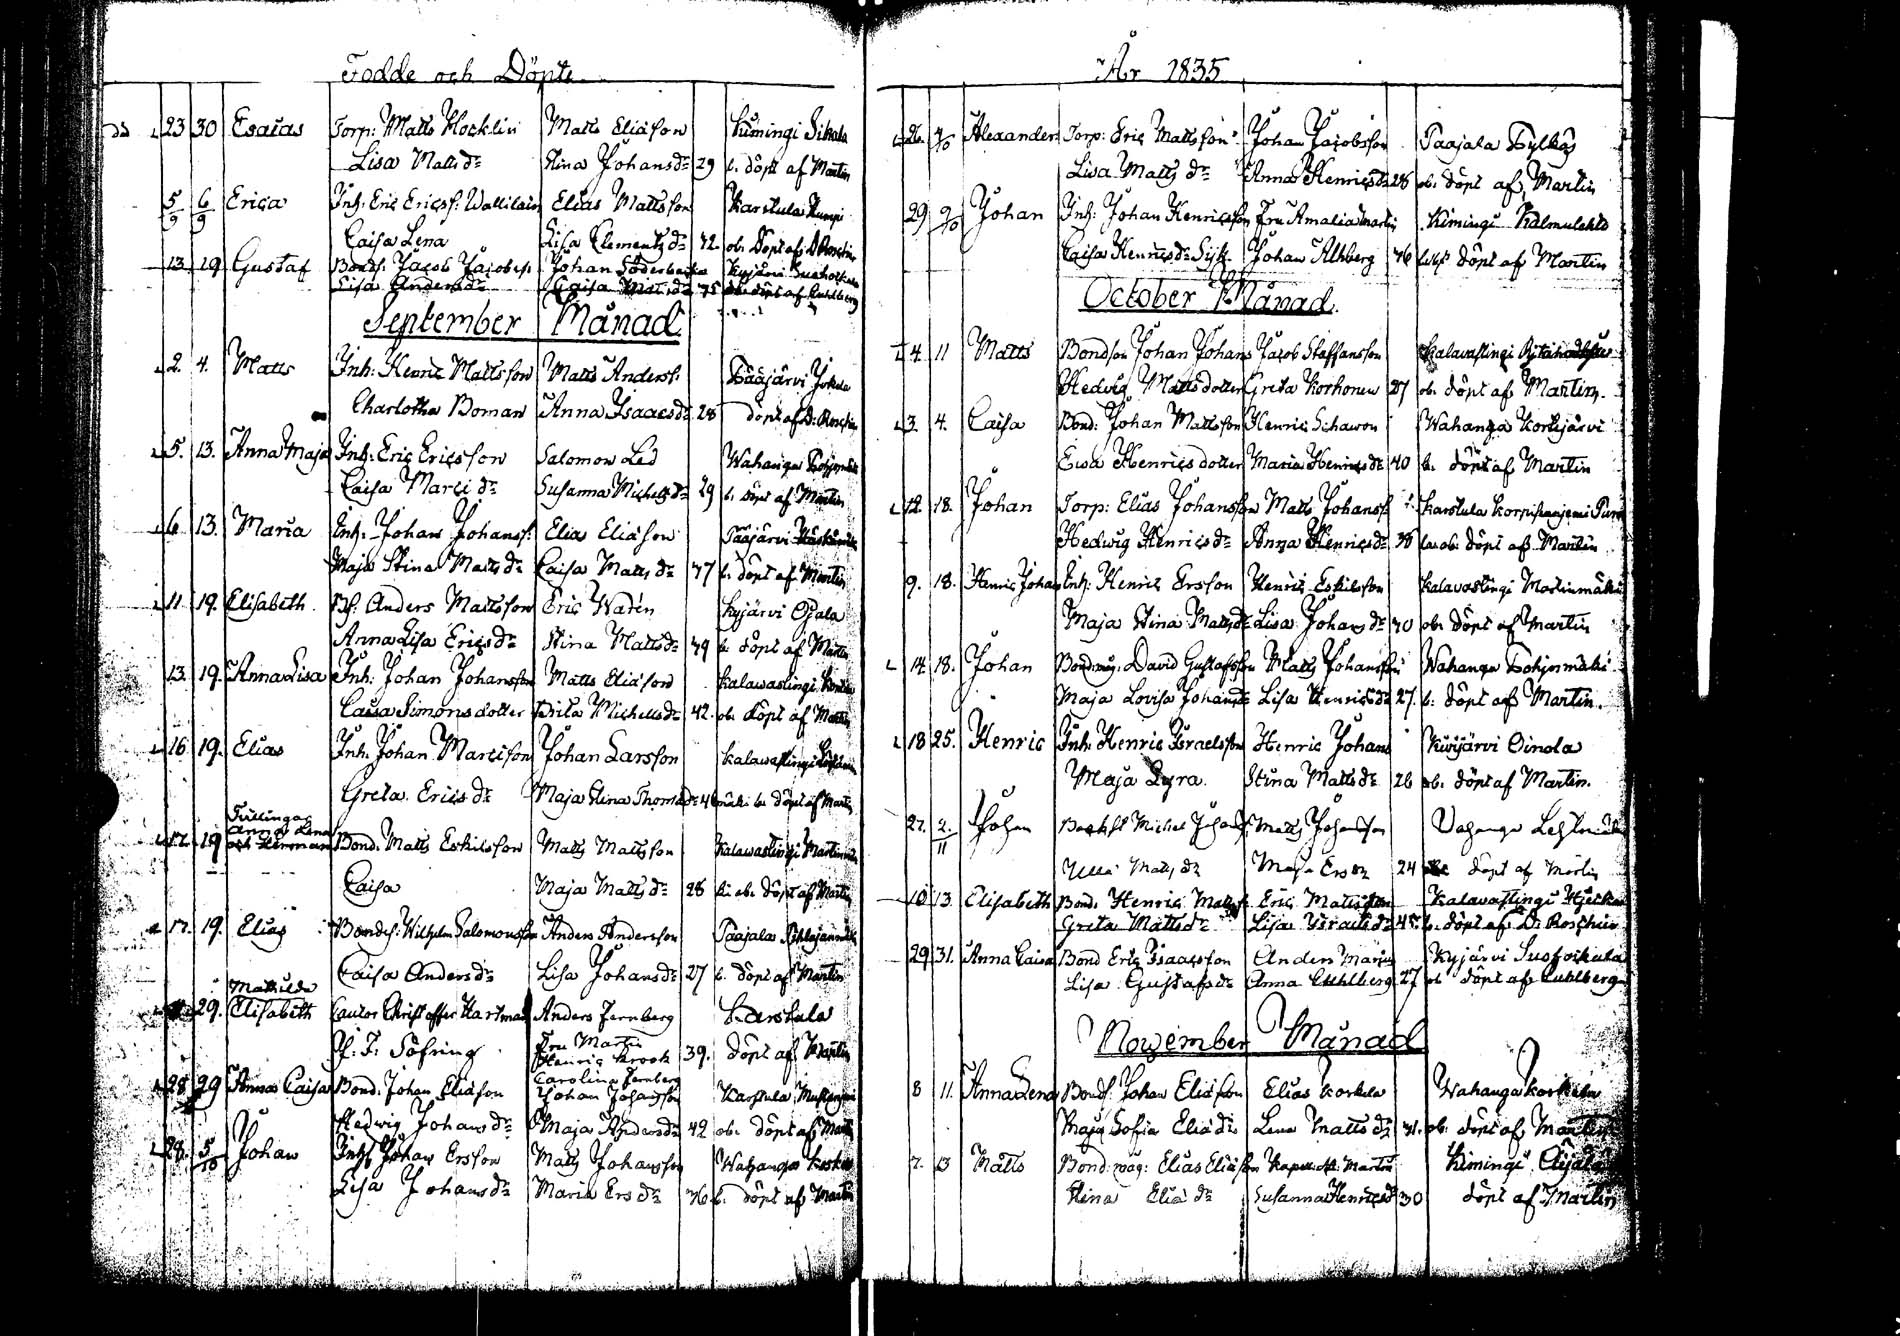 Fodde och Döpte
23 30 Esaias Torp: Matts Klocklin Matts Eliason Kimingi Sikala
Lisa Matts dr Stina Johans dr 29 b. döpt af Martin
5/9 6/9 Erica Inh: Eric Ericss: Wallilain Elias Mattsson Karstula Humpi
Caisa Lena Lisa Clements dr 42. ob. Döpt af D Roschier
13 19 Gustaf Bonds. Jacob Jacobss. Johan Söderbacka Kyjärvi
Lisa Anders dr Caisa Mats dr 45 ob. döpt af Cuhlberg
September Månad
2. 4. Matts Inh: Henric Mattsson Matts Anderss: Pääjärvi Jokela
Charlotha Boman Anna Isaacs dr 28 döpt af D: Roschier
5. 13. Anna Maja Inh: Eric Ericsson Salomon Led Wahanga
Caisa Marci dr Susanna Michels dr 29 b. döpt af Martin
6 13. Maria Inh: Johan Johanss: Elias Eliason Pääjärvi
Maja Stina Matts dr Caisa Matts dr 47 b. döpt af Martin
11 19. Elisabeth Bf. Anders Mattsson Eric Wadén Kyjärvi Ojala
Anna Lisa Erics dr Stina Matts dr 49 b. döpt af Martin
13. 19. Anna Lisa Inh: Johan Johansson Matts Eliason Kalawastingi
Caisa Simons dotter Brita Michels dr 42. ob. döpt af Martin
16 19. Elias Inh: Johan Marcisson Johan Larsson Kalawastingi
Greta Erics dr Maja Stina Thomas dr 40 b. döpt af Martin
Tvillingar
Anna Lena
17. 19 och Herman Bond. Matts Eskilsson Matts Mattsson Kalawastingi
Caisa Maja Matts dr 28 ob. döpt af Martin
17. 19. Elias Bonds: Wilhelm Salomonsson Anders Andersson Paajala
Caisa Anders dr Lisa Johans dr 27 b. döpt af Martin
Mathilda
29. Elisabeth Cantor Christoffer Hartman Anders Fernberg Karstula
Fru Martin
Söfring Henric Krook 39. döpt af Martin
Carolina Fernberg
28 29 Anna Caisa Bond. Johan Eliason Johan Johansson Karstula
Hedwig Johans dr Maja Anders dr 42 ob. döpt af Martin
28. 5/10 Johan Inh: Johan Ersson Matts Johansson Wahanga
Lisa Johans dr Maria Ers dr 46 b. döpt af Martin
År 1835
26. 4/10 Alexander Torp: Eric Mattsson Johan Jacobsson Paajala
Lisa Matts dr Anna Henrics dr 26 ob. döpt af Martin
29 9/10 Johan Inh: Johan Henricsson Fru Amalia Martin Kimingi Kalmulehto
Caisa Henrics dr Syk Johan Ahlberg 46 döpt af Martin
October Månad
4. 11 Matts Bondson Johan Johans Jacob Staffansson Kalawastingi
Hedvig Matts dotter Greta Korhonen 27 ob. döpt af Martin.
3. 4. Caisa Bond: Johan Mattsson Henric Schawon Wahanga Korkejärvi
Ewa Henrics dotter Maria Henrics dr 40 b. döpt af Martin
12. 18. Johan Torp: Elias Johansson Matts Johanss Karstula
Hedwig Henrics dr Anna Henrics dr 38 ob: döpt af Martin
9. 18. Henric Johan Inh: Henric Ersson Henric Eskilsson Kalawastingi
Maja Stina Matts dr Lisa Johans dr 40 ob. döpt af Martin
14 18. Johan Bondmåg. David Gustafsson Matts Johansson Wahanga Pohjonmäki
Maja Lovisa Johans dr Lisa Henrics dr 27. b. döpt af Martin.
18 25. Henric Inh: Henric Israelsson Henric Johans Kivijärvi Oinola
Maja Lyra. Stina Matts dr 26 ob. döpt af Martin.
27. 2./11 Johan Michel Johans Matts Johansson Vahanga
Ulla Matts dr Maja Ers dr 24 döpt af Martin
10 13 Elisabeth Bond. Henric Matts Eric Mattsson Kalavastingi
Greta Matts dr Lisa Israels dr 45. b. döpt af D: Roschier
29 31. Anna Caisa Bond Eric Isaacsson Anders Kyjärvi
Lisa Gustafs dr Anna Cuhlberg 27 ob döpt af Cuhlberg
November Månad
8 11. Anna Lena Bonds: Johan Eliasson Elias Korkela Wahanga Korkela
Maja Sofia Elia dr Lena Matts dr 41. ob. döpt af Martin
7. 13 Matts Bond: måg: Elias Eliasson Martin Kimingi
Stina Elia dr Susanna Henrics dr 30 döpt af Martin